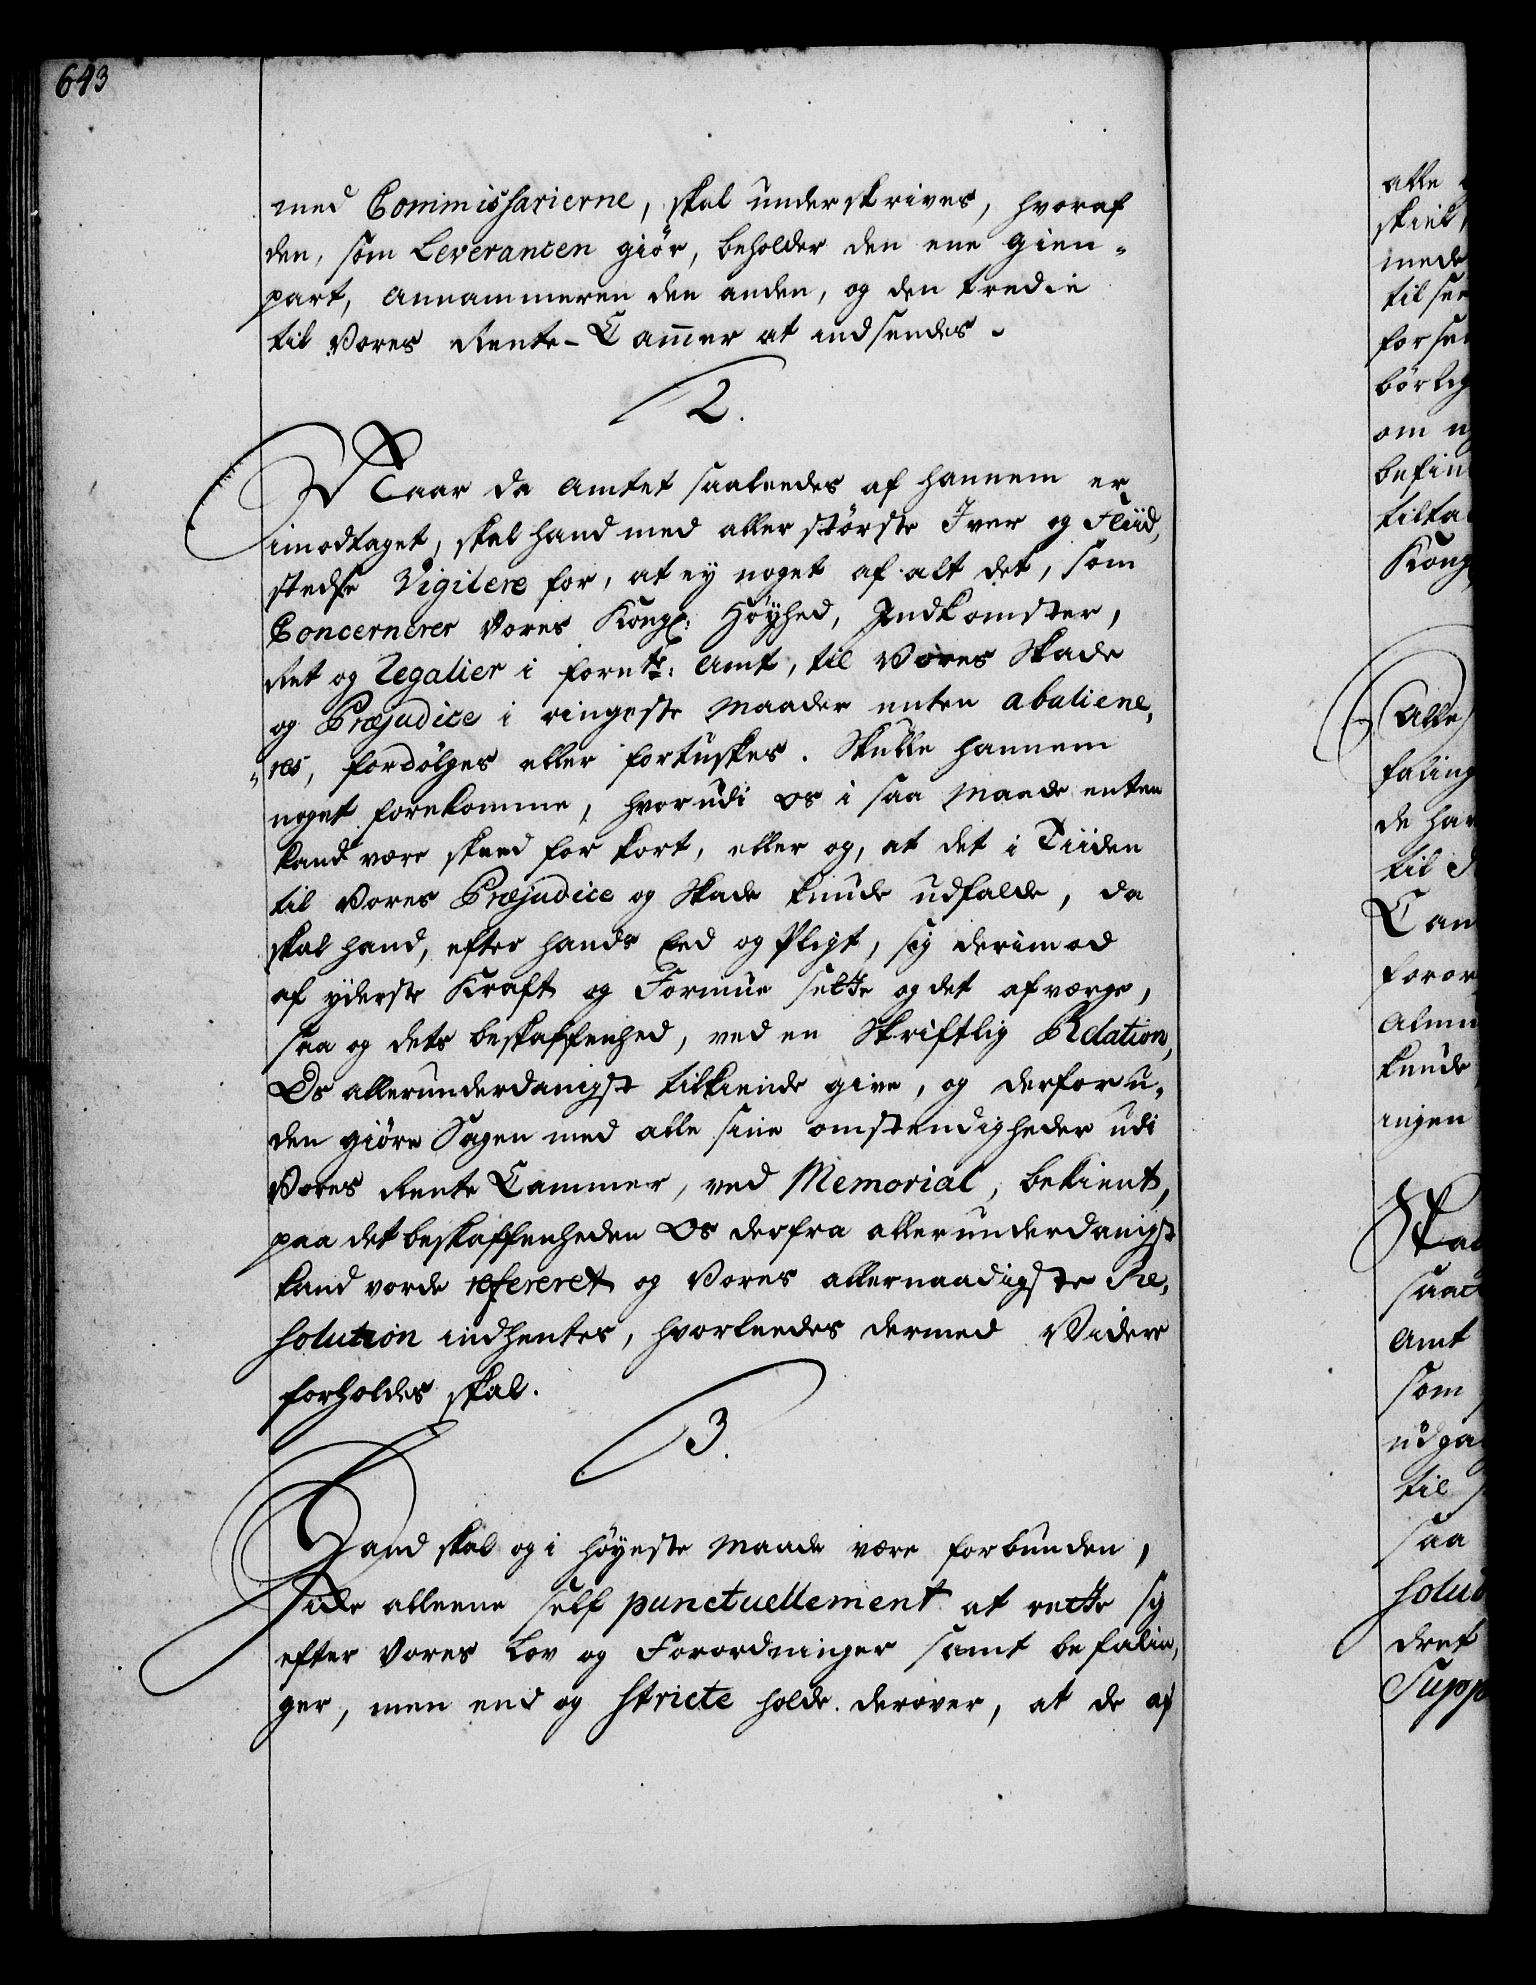 643
med Commissarierne, skal underskrives, hvoraf
den, som Leverancen giör, beholder den ene Gien-
part, Annammeren den anden, og den tredie
til Vores Rente-Cammer at indsendes.
2.
Naar da Amtet saaleedes af hannem er
imodtaget, skal hand med allerstörste Iver og Fliid,
stedse Vigilere for, at ey noget af alt det, som
Concernerer Vores Kongl: Höyhed, Indkomster,
Ret og Regalier i fornte: Amt, til Vores Skade
og Præjudice i ringeste Maader enten abaliene,
"res, fordölges eller fortuskes. Skulle hannem
noget forekomme, hvorudi Os i saa Maade enten
kand være skeed for kort, eller og, at det i Tiiden
til Vores Præjudice og Skade kunde udfalde, da
skal hand, efter hands Eed og Pligt, sig derimod
af yderste Kraft og Formue sette og det afværge,
saa og dets beskaffenhed, ved en Skriftlig Relation,
Os allerunderdanigst tilkiende give, og derforu-
den giöre Sagen med alle sine omstendigheder udi
Vores Rente Cammer, ved Memorial, bekient,
paa det beskaffenheden Os derfra allerunderdanigst
kand vorde refereret og Vores allernaadigste Re,
solution indhentes, hvorleedes dermed Videre
forholdes skal.
3.
Hand skal og i höyeste Maade være forbunden,
icke alleene self punctuellement at rette sig
efter Vores Lov og Forordninger samt befalin,
ger, men end og stricte holde derover, at de af
alle
skiel
mede
til see
for see
börlig
om n
befin
tilta
Kong
Alle
faling
de har
til d
Cam
foror
Almu
kunde
ingen
Skad
saad
Amt
som
udga
til
saa
solut
dref
Supp